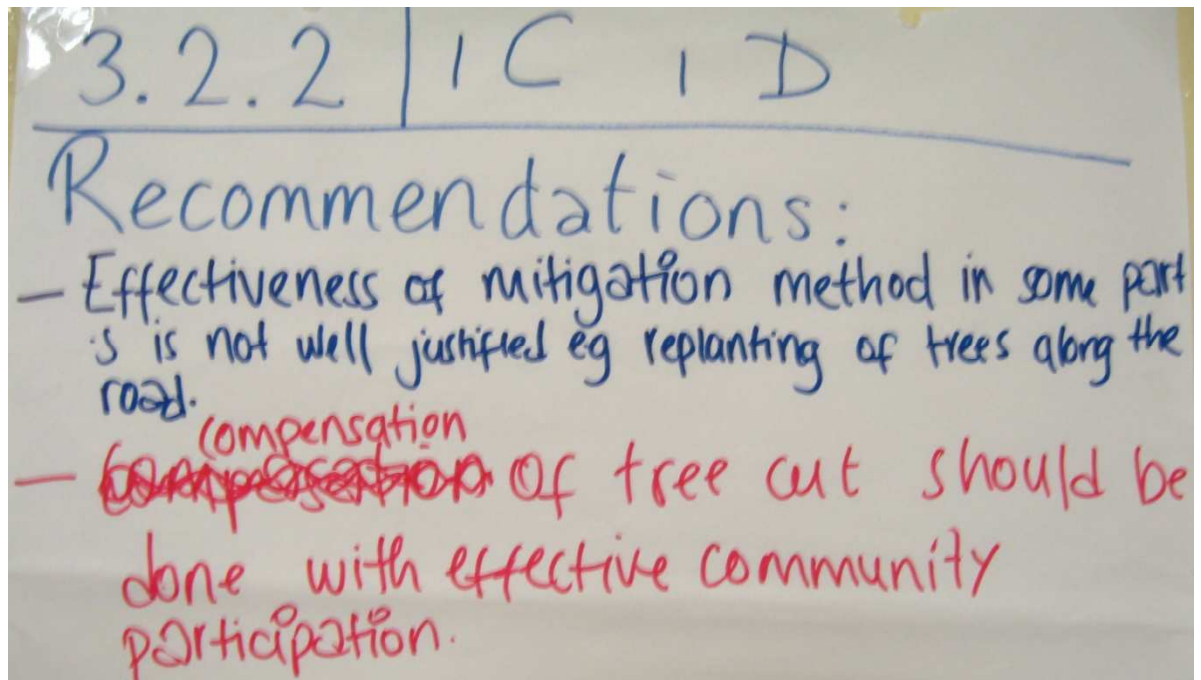 3.2.2 | 1C 1D
Recommendations:
- Effectiveness of mitigation method in some part
s is not well justified eg replanting of trees along the
road.
compensation
- of tree cut should be
done with effective community
participation.